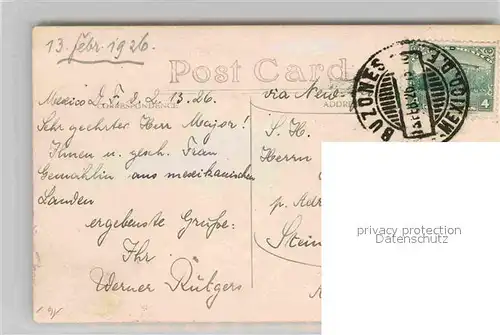 13. febr. 1926.
Post Card
CORRESPONDENCE
ADDRE
BUZONES
MEXICO. D.F.
4
Mexico D. F. d. 2. 13. 26.
via New
Sehr geehrter Herr Major!
Ihnen u. gesch. Frau
Gemahlin aus mexikanischen
Landen
ergebenste Grüße:
Ihr
Werner Rütgers
S. H.
Herrn
p. Adr
Stein
privacy protection
Datenschutz